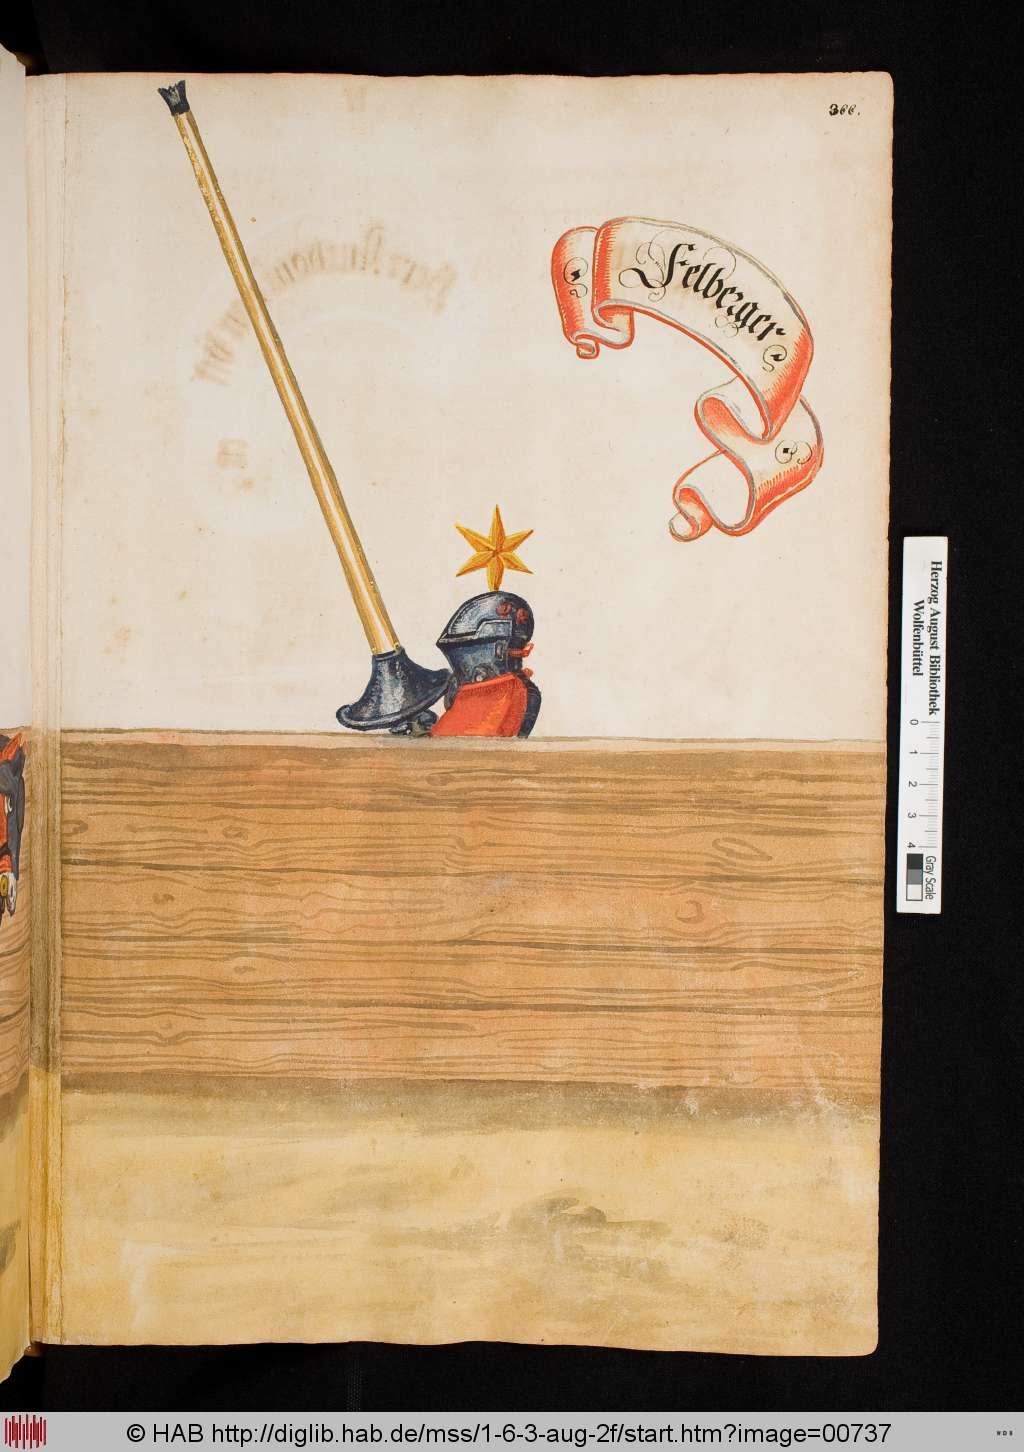 366.
Felberger
Herzog August Bibliothek
Wolfenbüttel
0 1 2 3 4
Gray Scale
© HAB http://diglib.hab.de/mss/1-6-3-aug-2f/start.htm?image=00737